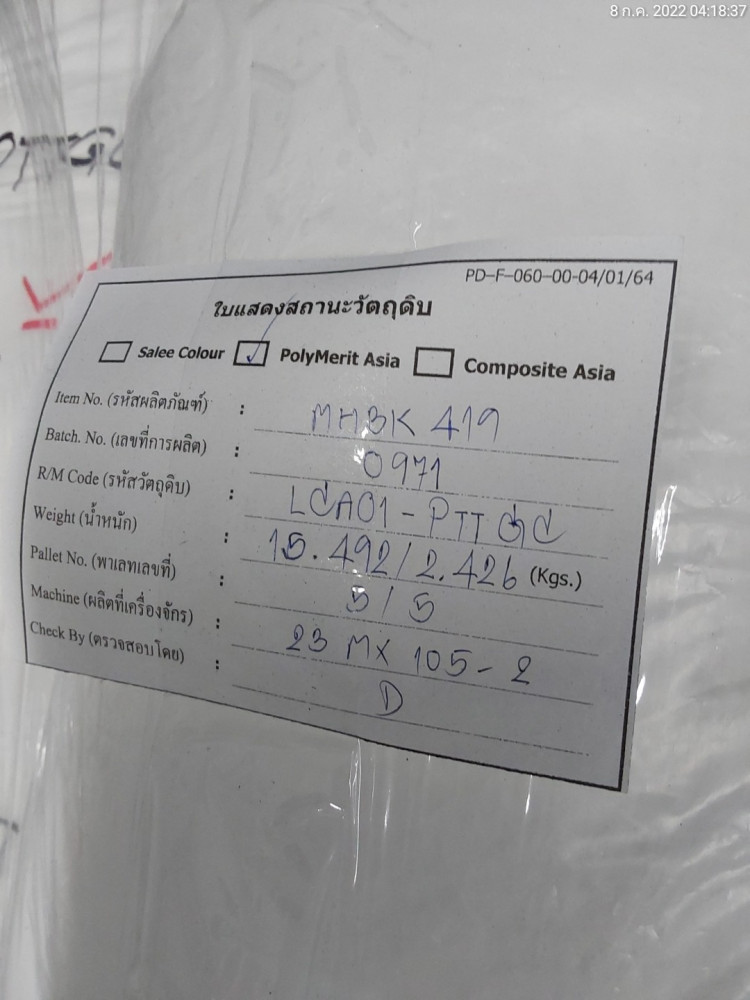 8 ก.ค. 2022 04:18:37
PD-F-060-00-04/01/64
ใบแสดงสถานะวัตถุดิบ
Salee Colour ✓ PolyMerit Asia Composite Asia
Item No. (รหัสผลิตภัณฑ์) : MHBK 419
Batch. No. (เลขที่การผลิต) : 0971
R/M Code (รหัสวัตถุดิบ) : LCA01 - PTT GC
Weight (น้ำหนัก) : 15.492/2.426 (Kgs.)
Pallet No. (พาเลทเลขที่) : 5/5
Machine (ผลิตที่เครื่องจักร) : 23 MX 105-2
Check By (ตรวจสอบโดย) : D